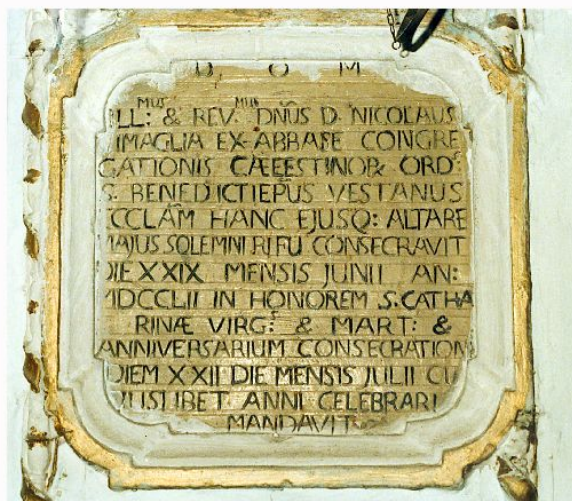 D O M
ILL:MUS & REV.MUS DÑUS D. NICOLAUS
IMAGLIA EX-ABBATE CONGRE
GATIONIS CÆLESTINOR ORD:S
S. BENEDICTI EPUS VESTANUS
ECCLAM HANC EJUSQ: ALTARE
MAJUS SOLEMNI RITU CONSECRAVIT
DIE XXIX MENSIS JUNII AN:
MDCCLII IN HONOREM S. CATHA
RINÆ VIRG:S & MART: &
ANNIVERSARIUM CONSECRATION
DIEM XXII DIE MENSIS JULII CU
JUSLIBET ANNI CELEBRARI
MANDAVIT